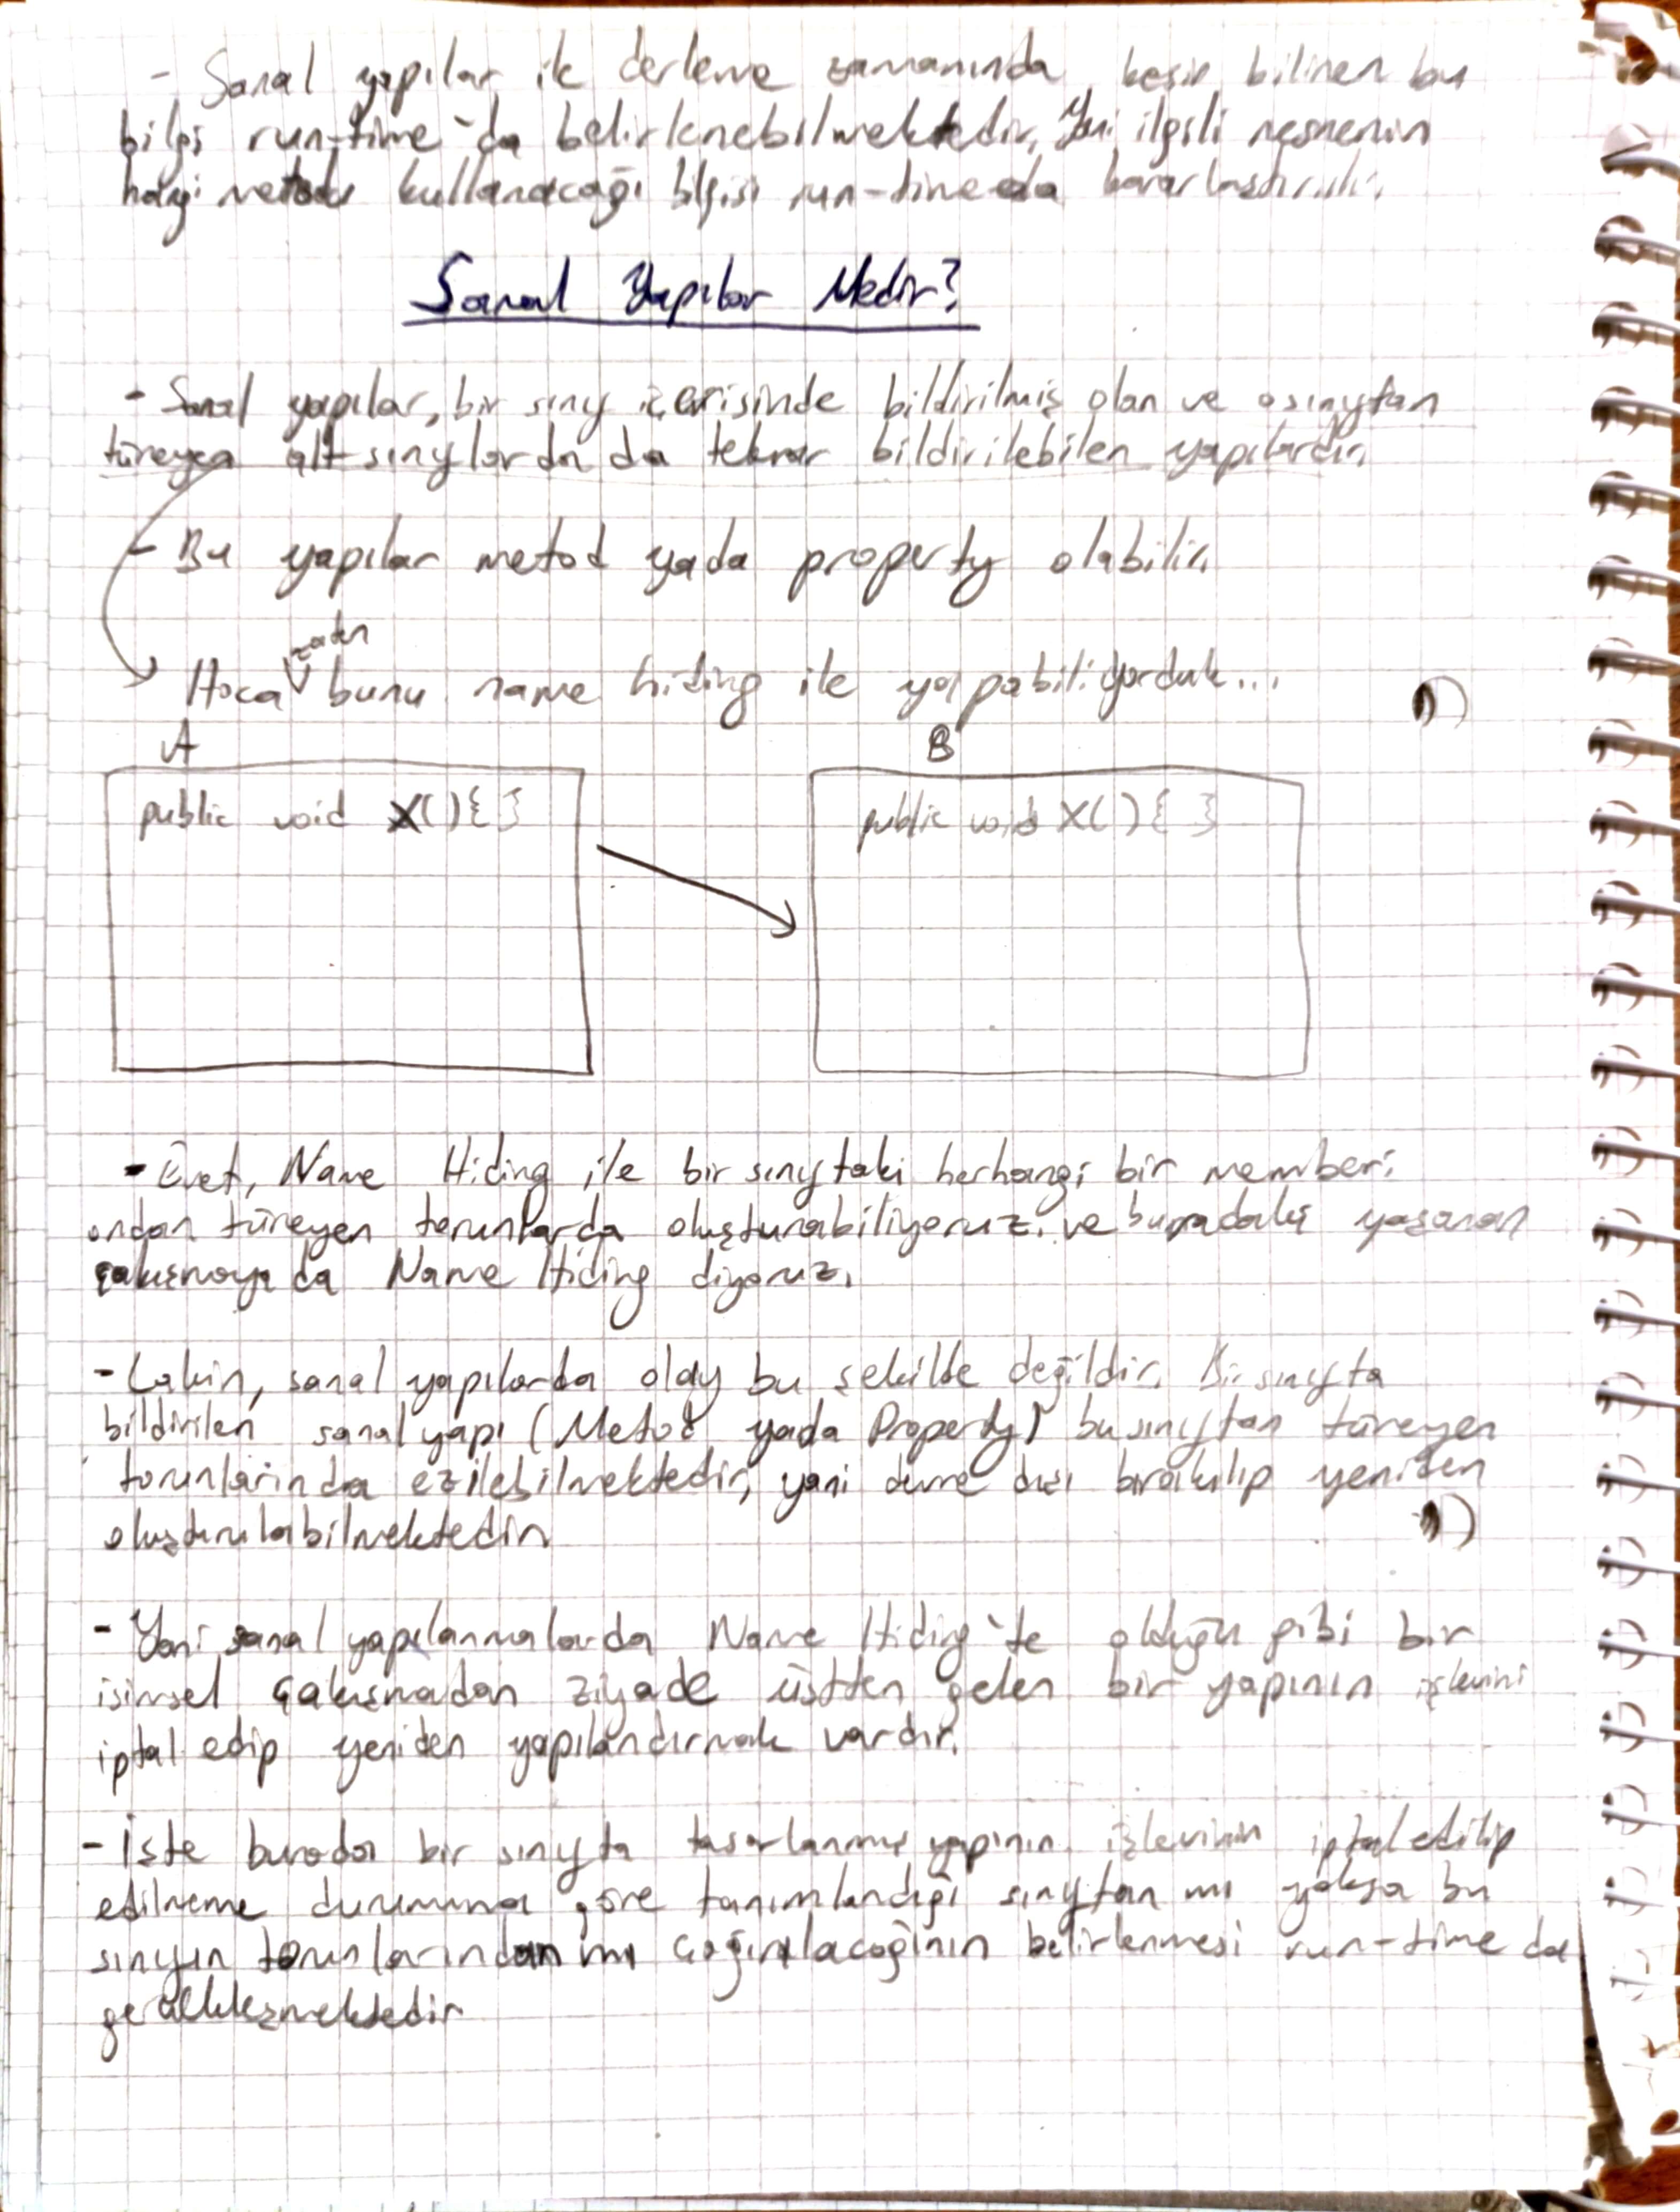 - Sanal yapılar ile derleme zamanında kesin bilinen bu
bilgi run-time'da belirlenebilmektedir. Yani ilgili nesnenin
hangi metodu kullanacağı bilgisi run-time da kararlaştırılır.
Sanal Yapılar Nedir?
- Sanal yapılar, bir sınıf içerisinde bildirilmiş olan ve o sınıftan
türeyen alt sınıflarda da tekrar bildirilebilen yapılardır.
- Bu yapılar metod yada property olabilir.
Hoca zaten bunu name hiding ile yapabiliyorduk...
A
B
public void X(){ }
public void X(){ }
- Evet, Name Hiding ile bir sınıftaki herhangi bir memberi
ondan türeyen torunlarda oluşturabiliyoruz. ve buradaki yaşanan
çakışmaya da Name Hiding diyoruz.
- Lakin, sanal yapılarda olay bu şekilde değildir. Bir sınıfta
bildirilen sanal yapı (Metod yada Property) bu sınıftan türeyen
torunlarında ezilebilmektedir, yani devre dışı bırakılıp yeniden
oluşturulabilmektedir
- Yani sanal yapılanmalarda Name Hiding'te olduğu gibi bir
isimsel çakışmadan ziyade üstten gelen bir yapının işlevini
iptal edip yeniden yapılandırmak vardır.
- İşte burada bir sınıfta tasarlanmış yapının işlevinin iptal edilip
edilmeme durumuna göre tanımlandığı sınıftan mı yoksa bu
sınıfın torunlarından mı çağırılacağının belirlenmesi run-time da
gerçekleşmektedir